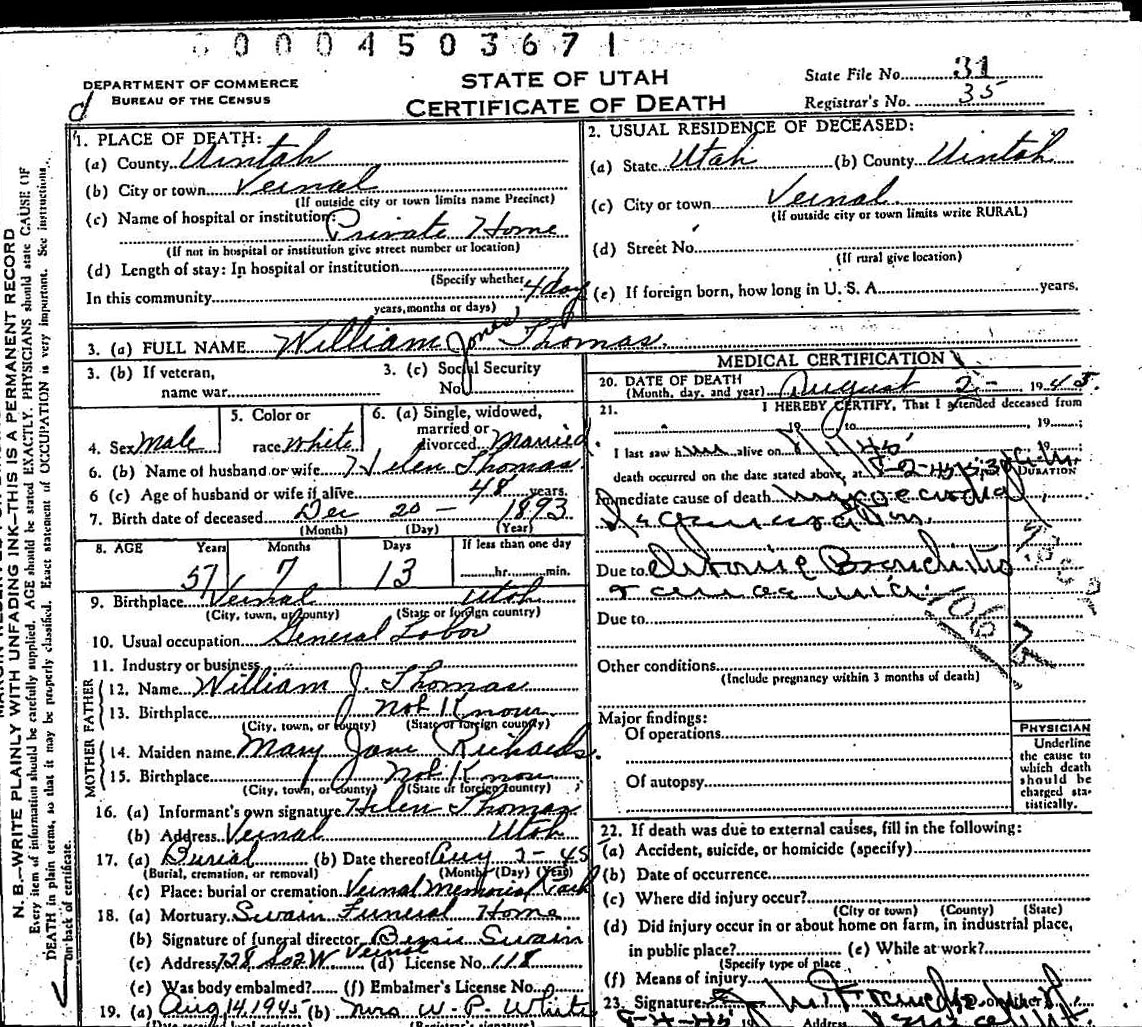 00004503671
DEPARTMENT OF COMMERCE
BUREAU OF THE CENSUS
STATE OF UTAH
CERTIFICATE OF DEATH
State File No. 31
Registrar's No. 35
d
N. B.—WRITE PLAINLY WITH UNFADING INK—THIS IS A PERMANENT RECORD
Every item of information should be carefully supplied. AGE should be stated EXACTLY. PHYSICIANS should state CAUSE OF
DEATH in plain terms, so that it may be properly classified. Exact statement of OCCUPATION is very important. See instructions
on back of certificate.
1. PLACE OF DEATH:
(a) County Uintah
(b) City or town Vernal
(If outside city or town limits name Precinct)
(c) Name of hospital or institution:
Private Home
(If not in hospital or institution give street number or location)
(d) Length of stay: In hospital or institution
(Specify whether
In this community 4 day
years, months or days)
2. USUAL RESIDENCE OF DECEASED:
(a) State Utah (b) County Uintah
(c) City or town Vernal
(If outside city or town limits write RURAL)
(d) Street No.
(If rural give location)
(e) If foreign born, how long in U. S. A. years.
3. (a) FULL NAME William Jones Thomas.
3. (b) If veteran,
name war
3. (c) Social Security
No.
4. Sex Male
5. Color or
race White
6. (a) Single, widowed,
married or
divorced Married
6. (b) Name of husband or wife Helen Thomas
6 (c) Age of husband or wife if alive 48 years.
7. Birth date of deceased Dec 20 - 1893
(Month) (Day) (Year)
8. AGE Years Months Days If less than one day
57 7 13 hr. min.
9. Birthplace Vernal Utah
(City, town, or county) (State or foreign country)
10. Usual occupation General Labor
11. Industry or business
FATHER
12. Name William J. Thomas
13. Birthplace Not Known
(City, town, or county) (State or foreign county)
MOTHER
14. Maiden name Mary Jane Richards.
15. Birthplace Not Know
(City, town, or county) (State or foreign country)
16. (a) Informant's own signature Helen Thomas
(b) Address Vernal Utah
17. (a) Burial (b) Date thereof Aug 2-45
(Burial, cremation, or removal) (Month) (Day) (Year)
(c) Place: burial or cremation Vernal Memorial Park
18. (a) Mortuary Swain Funeral Home
(b) Signature of funeral director Bessie Swain
(c) Address 728 So 2 W Vernal (d) License No. 118
(e) Was body embalmed? (f) Embalmer's License No.
19. (a) Aug 14 1945 (b) Mrs W. P. White
(Date received local registrar) (Registrar's signature)
MEDICAL CERTIFICATION
20. DATE OF DEATH
(Month, day, and year) August 2- 1945.
21. I HEREBY CERTIFY, That I attended deceased from
19 to 19
I last saw him alive on 19
death occurred on the date stated above, at 8-2-45
DURATION
Immediate cause of death myocardial
degeneration.
Due to Chronic Bronchitis
Due to
1067
Other conditions
(Include pregnancy within 3 months of death)
Major findings:
Of operations
Of autopsy
PHYSICIAN
Underline
the cause to
which death
should be
charged sta-
tistically.
22. If death was due to external causes, fill in the following:
(a) Accident, suicide, or homicide (specify)
(b) Date of occurrence
(c) Where did injury occur?
(City or town) (County) (State)
(d) Did injury occur in or about home on farm, in industrial place,
in public place? (e) While at work?
(Specify type of place
(f) Means of injury
23. Signature
8-4-45 19 Address